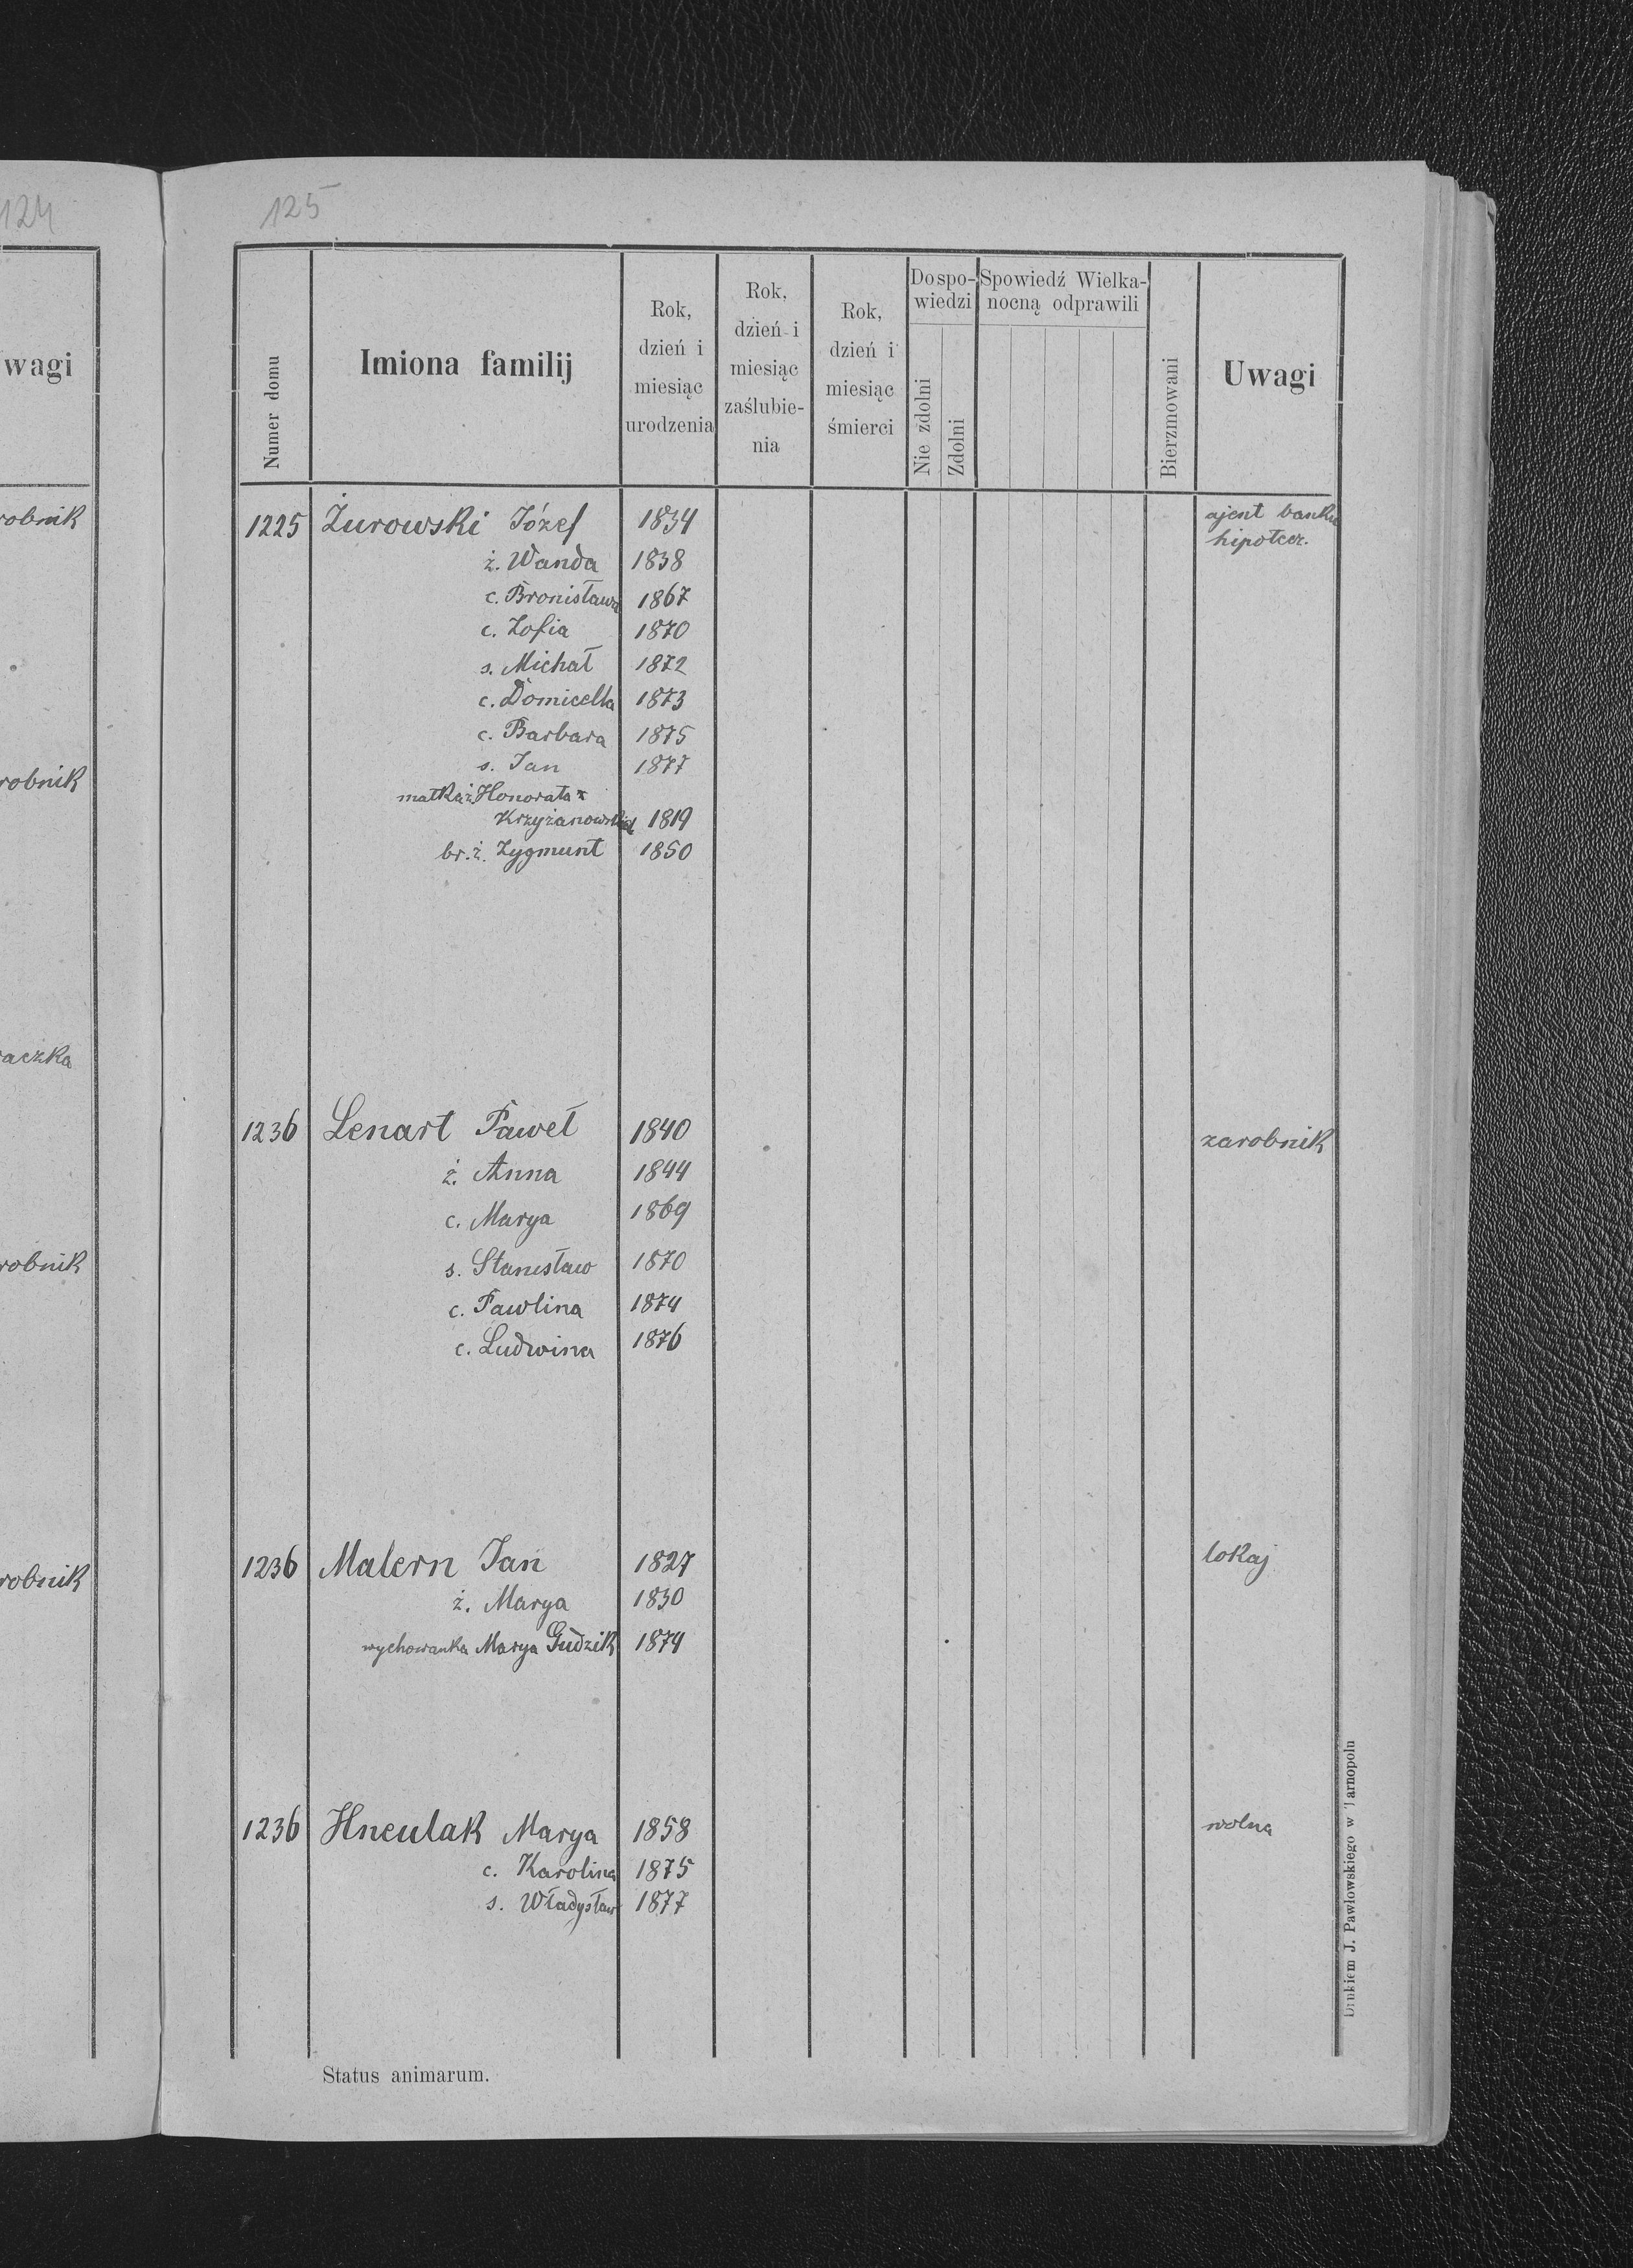 124
wagi
robnik
robnik
aczka
robnik
robnik
125
Numer domu
Imiona familij
Rok,
dzień i
miesiąc
urodzenia
Rok,
dzień i
miesiąc
zaślubie-
nia
Rok,
dzień i
miesiąc
śmierci
Do spo-
wiedzi
Nie zdolni
Zdolni
Spowiedź Wielka-
nocną odprawili
Bierzmowani
Uwagi
1225 Żurowski Józef 1834 ajent banku
hipotecz.
ż. Wanda 1838
c. Bronisława 1867
c. Zofia 1870
s. Michał 1872
c. Domicella 1873
c. Barbara 1875
s. Jan 1877
matka ż. Honorata
Krzyżanowska 1819
br. ż. Zygmunt 1850
1236 Lenart Paweł 1840 zarobnik
ż. Anna 1844
c. Marya 1869
s. Stanisław 1870
c. Pawlina 1874
c. Ludwina 1876
1236 Malern Jan 1827 lokaj
ż. Marya 1830
wychowanka Marya Gudzik 1874
1236 Hneulak Marya 1858 wolna
c. Karolina 1875
s. Władysław 1877
Status animarum.
Drukiem J. Pawłowskiego w Tarnopolu